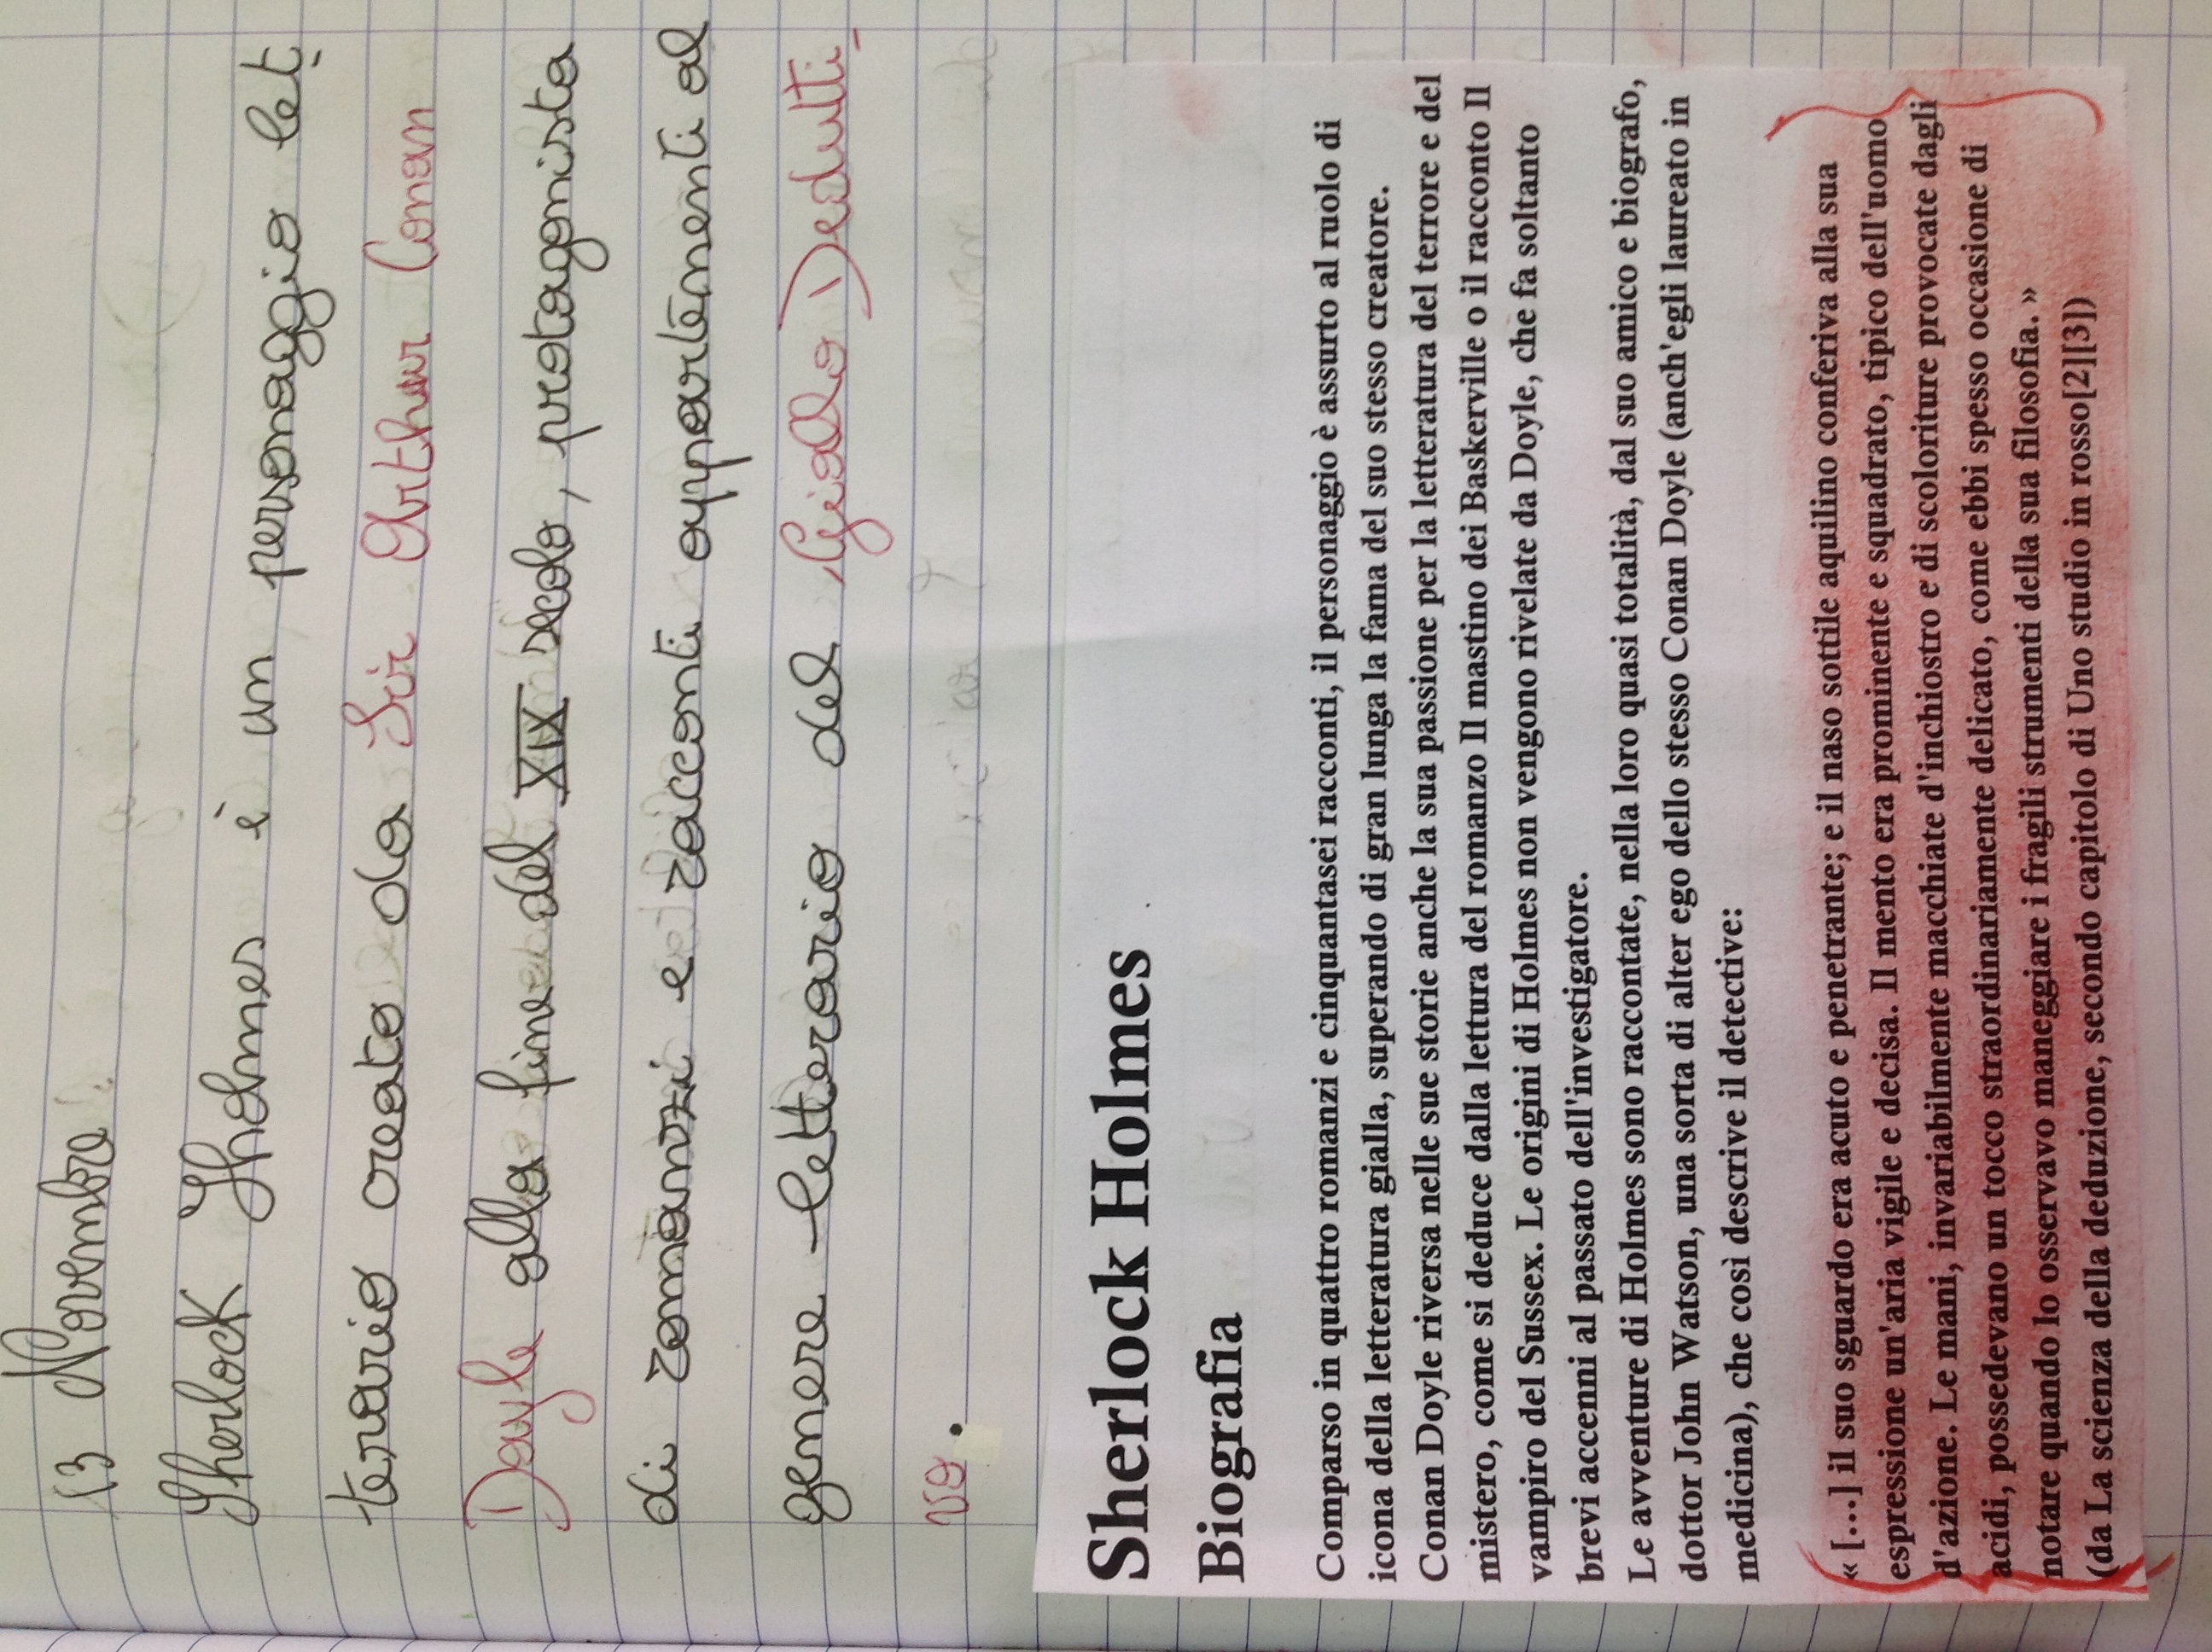 13 Novembre
Sherlock Sholmes è un personaggio let
terario creato da Sir Arthur Conan
Doyle alla fine del XIX secolo, protagonista
di romanzi e racconti appartenenti al
genere letterario del Giallo Dedutti
vo.
Sherlock Holmes
Biografia
Comparso in quattro romanzi e cinquantasei racconti, il personaggio è assurto al ruolo di
icona della letteratura gialla, superando di gran lunga la fama del suo stesso creatore.
Conan Doyle riversa nelle sue storie anche la sua passione per la letteratura del terrore e del
mistero, come si deduce dalla lettura del romanzo Il mastino dei Baskerville o il racconto Il
vampiro del Sussex. Le origini di Holmes non vengono rivelate da Doyle, che fa soltanto
brevi accenni al passato dell'investigatore.
Le avventure di Holmes sono raccontate, nella loro quasi totalità, dal suo amico e biografo,
dottor John Watson, una sorta di alter ego dello stesso Conan Doyle (anch'egli laureato in
medicina), che così descrive il detective:
« [...] il suo sguardo era acuto e penetrante; e il naso sottile aquilino conferiva alla sua
espressione un'aria vigile e decisa. Il mento era prominente e squadrato, tipico dell'uomo
d'azione. Le mani, invariabilmente macchiate d'inchiostro e di scoloriture provocate dagli
acidi, possedevano un tocco straordinariamente delicato, come ebbi spesso occasione di
notare quando lo osservavo maneggiare i fragili strumenti della sua filosofia. »
(da La scienza della deduzione, secondo capitolo di Uno studio in rosso[2][3])